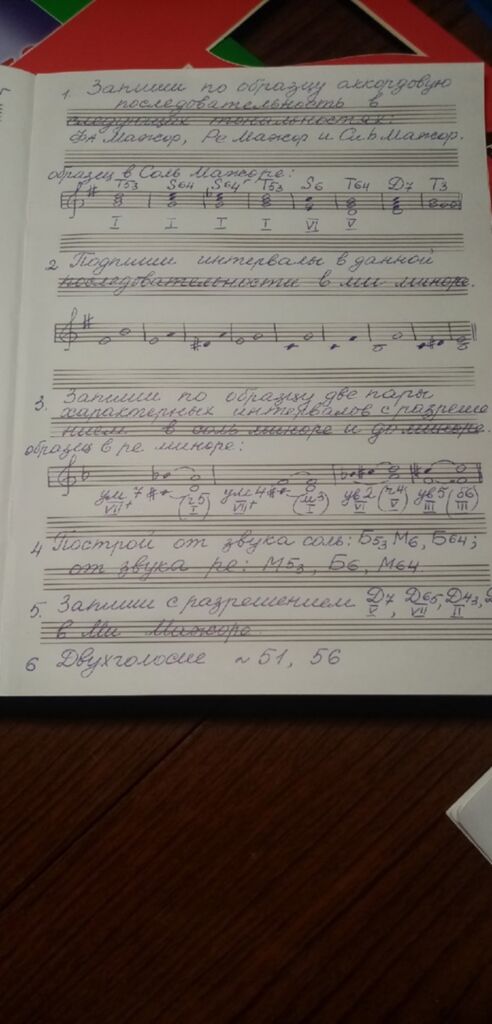 1. Запиши по образцу аккордовую
последовательность в
следующих тональностях:
Фа Мажор, Ре Мажор и Си b Мажор.
образец в Соль Мажоре:
T53 S64 S64 T53 S6 T64 Д7 T3
I I I I VI V
2 Подпиши интервалы в данной
последовательности в ми миноре.
3. Запиши по образцу две пары
характерных интервалов с разреше
нием в соль миноре и до миноре.
образец в ре миноре:
ум 7 (ч5) ум4 (м3) ув2 (ч4) ув5 (б6)
VII+ I VII+ I VI V III III
4 Построй от звука соль: Б53 М6, Б64;
от звука ре: М53, Б6, М64.
5. Запиши с разрешением Д7, Д65, Д43,
V VII II
в Ми Мажоре.
6 Двухголосие ~ 51, 56